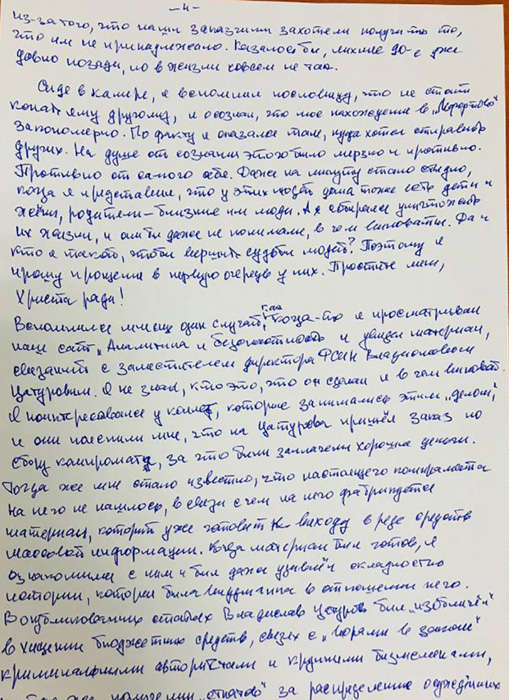 -4-
из-за того, что наши заказчики захотели получить то,
что им не принадлежало. Казалось бы, лихие 90-е уже
давно позади, но в жизни совсем не так.
Сидя в камере, я вспомнил пословицу, что не стоит
копать яму другому, и осознал, что мое нахождение в "Лефортово"
закономерно. По факту я оказался там, куда хотел отправить
других. На душе от сознания этого было мерзко и противно.
Противно от самого себя. Даже на минуту стало стыдно,
когда я представил, что у этих людей дома тоже есть дети и
жёны, родители - близкие им люди. А я старался уничтожить
их жизни, и они даже не понимали, в чем виноваты. Да и
кто я такой, чтобы вершить судьбы людей? Поэтому я
прошу прощения в первую очередь у них. Простите меня,
Христа ради!
Вспомнился мне их один случай, как когда-то я просматривал
наш сайт "Аналитика и безопасность" и увидел материал,
связанный с заместителем директора ФСИН Владиславом
Цатуровым. Я не знал, кто это, что он сделал и в чем виноват.
Я поинтересовался у коллег, которые занимались этим "делом",
и они пояснили мне, что на Цатурова пришёл заказ по
сбору компромата, за что были заплачены хорошие деньги.
Тогда же мне стало известно, что настоящего компромата
на него не нашлось, в связи с чем на него фабрикуется
материал, который уже готовят к выходу в ряде средств
массовой информации. Когда материал был готов, я
ознакомился с ним и был даже удивлён складностью
истории, которая была выдумана в отношении него.
В опубликованных статьях Владислав Цатуров был "изобличён"
в хищении бюджетных средств, связях с "ворами в законе"
криминальными авторитетами и крупными бизнесменами,
получении "откатов" за распределение осуждённых